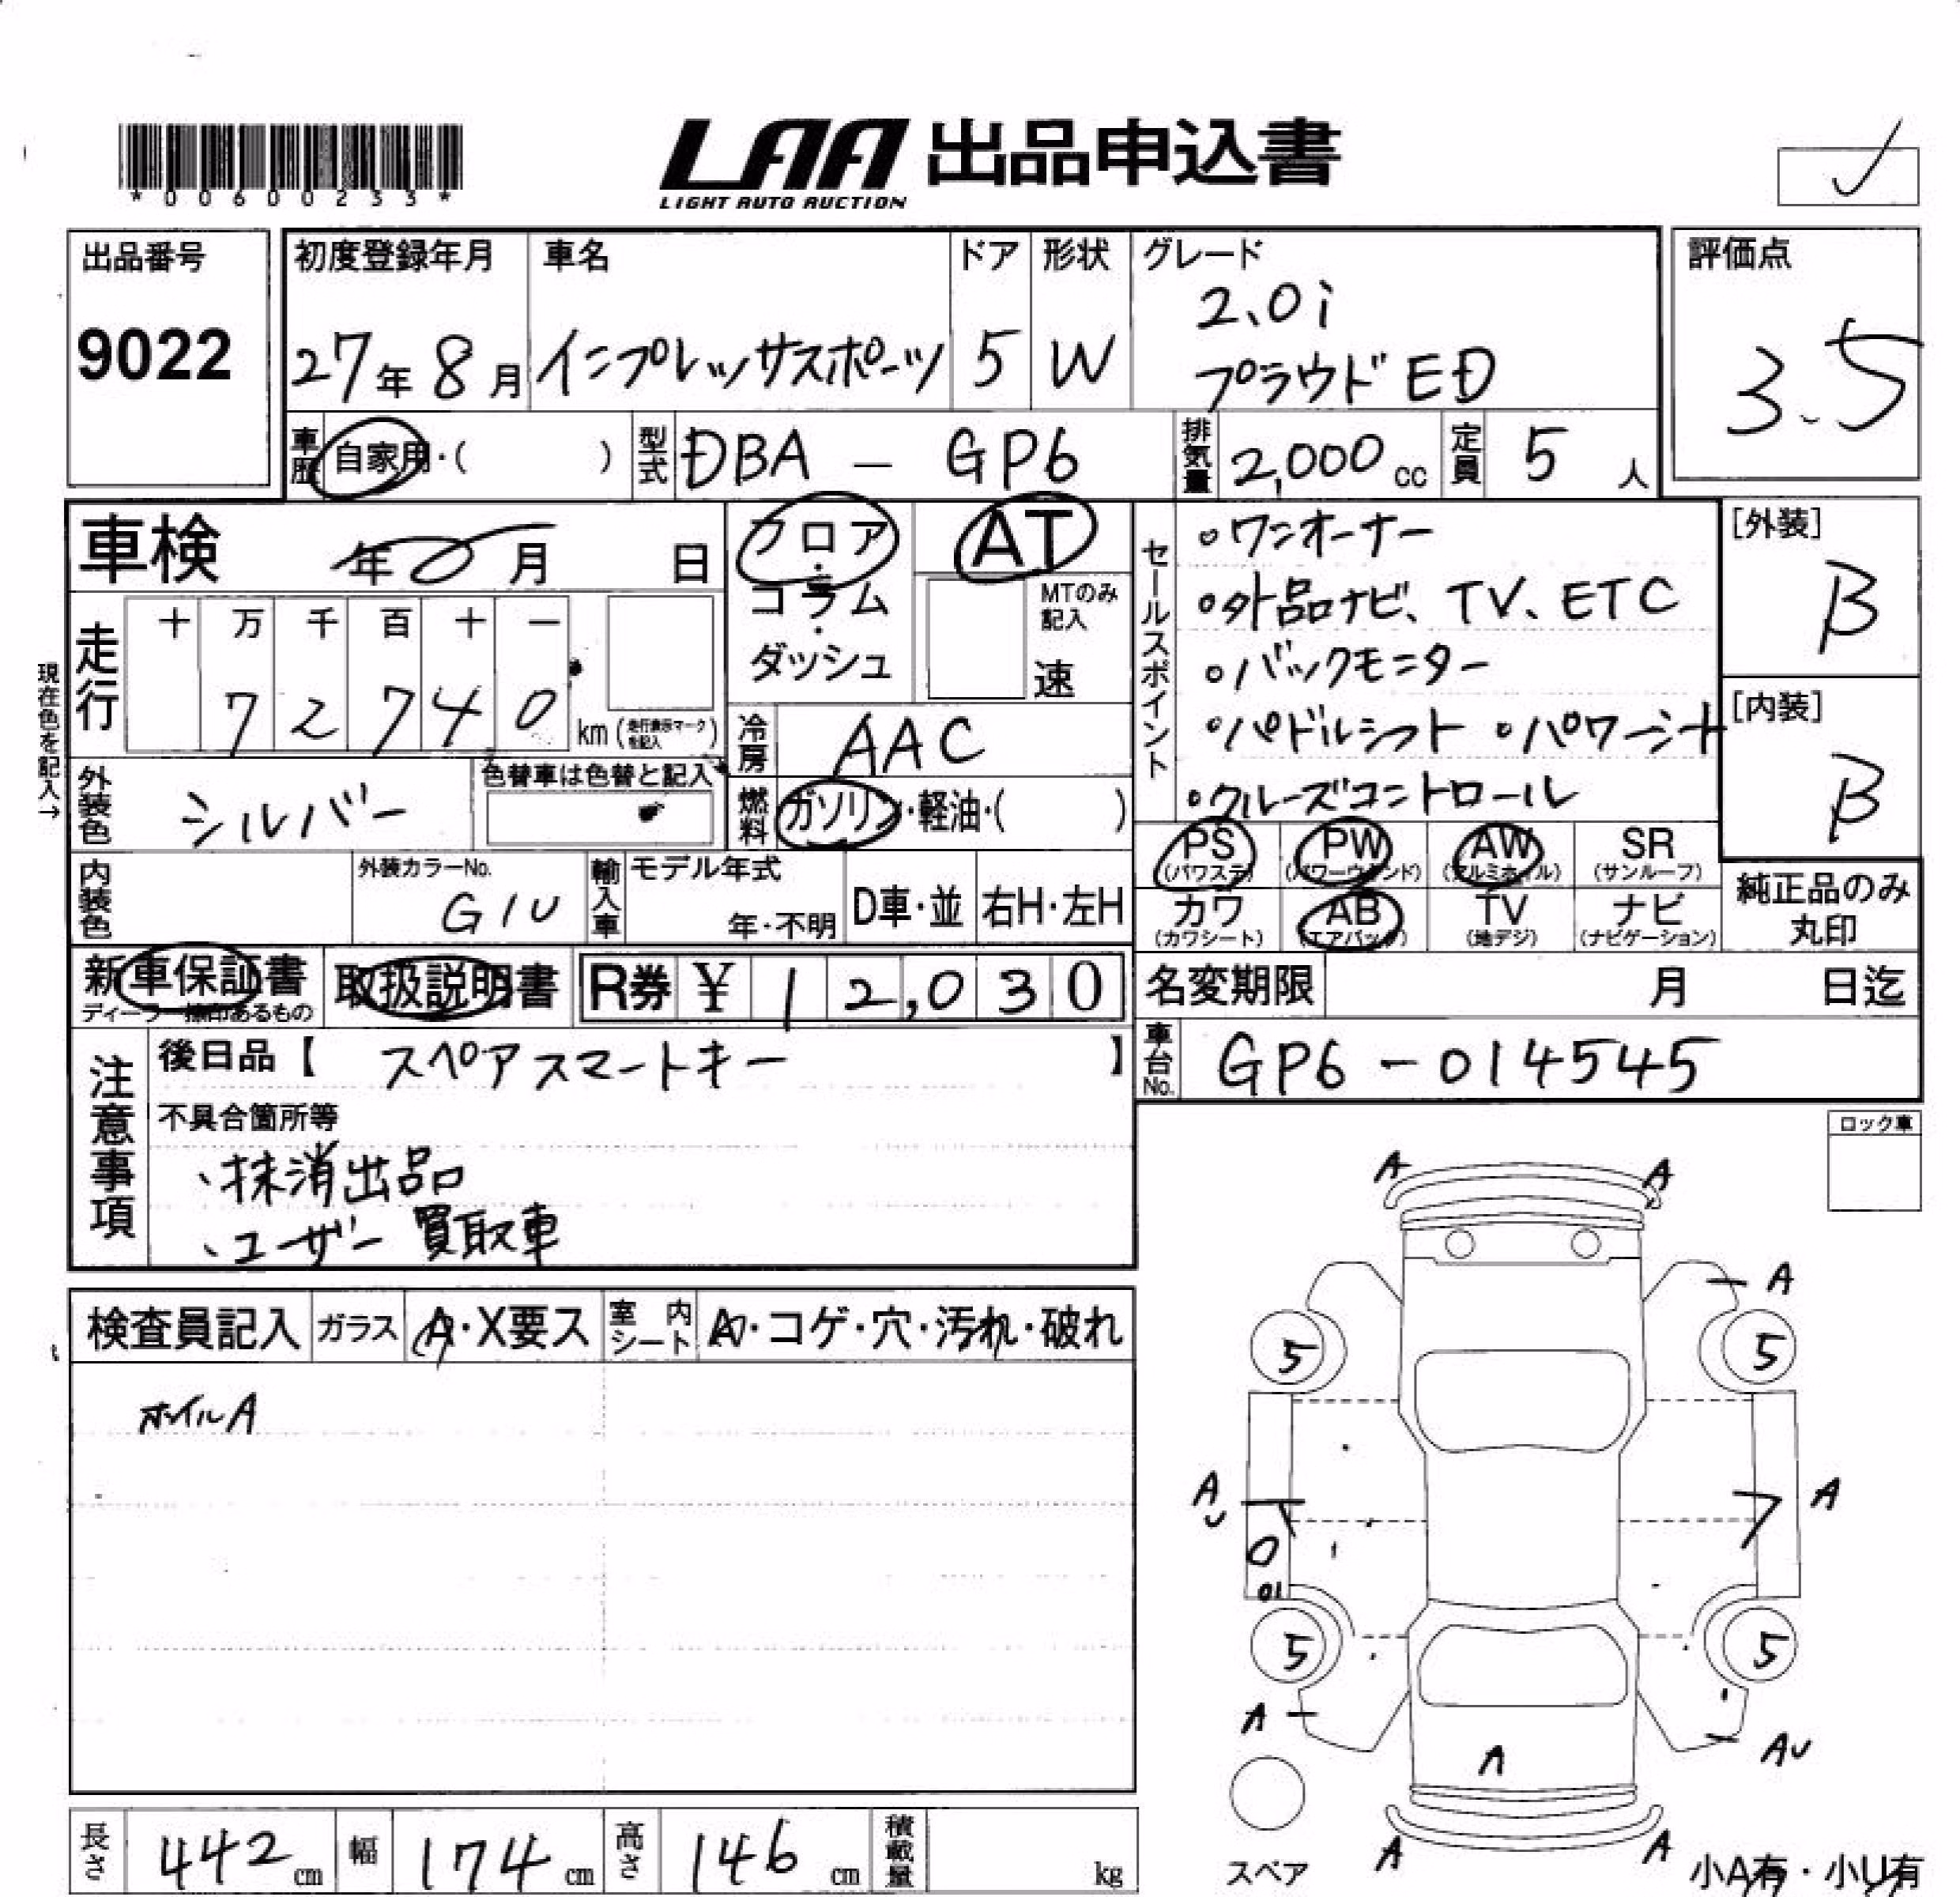 *00600233*
LAA 出品申込書
LIGHT AUTO AUCTION
出品番号
9022
初度登録年月
27年8月
車名
インプレッサスポーツ
ドア
5
形状
W
グレード
2.0i
プラウドED
評価点
3.5
車歴
自家用・( )
型式
DBA - GP6
排気量
2,000 cc
定員
5人
車検 年 月 日
フロア・コラム・ダッシュ
AT
MTのみ記入
速
走行
十 万 千 百 十 一
7 2 7 4 0 km (走行表示マークを記入)
現在色を記入→
冷房
AAC
燃料
ガソリン・軽油・( )
外装色
シルバー
色替車は色替と記入
内装色
外装カラーNo.
G1U
輸入車
モデル年式
年・不明
D車・並
右H・左H
セールスポイント
・ワンオーナー
・外品ナビ、TV、ETC
・バックモニター
・パドルシフト ・パワーシート
・クルーズコントロール
[外装]
B
[内装]
B
PS (パワステ)
PW (パワーウインド)
AW (アルミホイル)
SR (サンルーフ)
カワ (カワシート)
AB (エアバック)
TV (地デジ)
ナビ (ナビゲーション)
純正品のみ
丸印
新車保証書
ディーラー捺印あるもの
取扱説明書
R券 ¥ 12,030
名変期限 月 日迄
車台No.
GP6-014545
注意事項
後日品【 スペアスマートキー 】
不具合箇所等
、抹消出品
、ユーザー買取車
ロック車
検査員記入
ガラス
A・X要ス
室内シート
A・コゲ・穴・汚れ・破れ
ホイルA
A A
A
5 5
A
U
A
5 5
A
AU
A
A A
スペア
小A有・小U有
長さ
442 cm
幅
174 cm
高さ
146 cm
積載量
kg